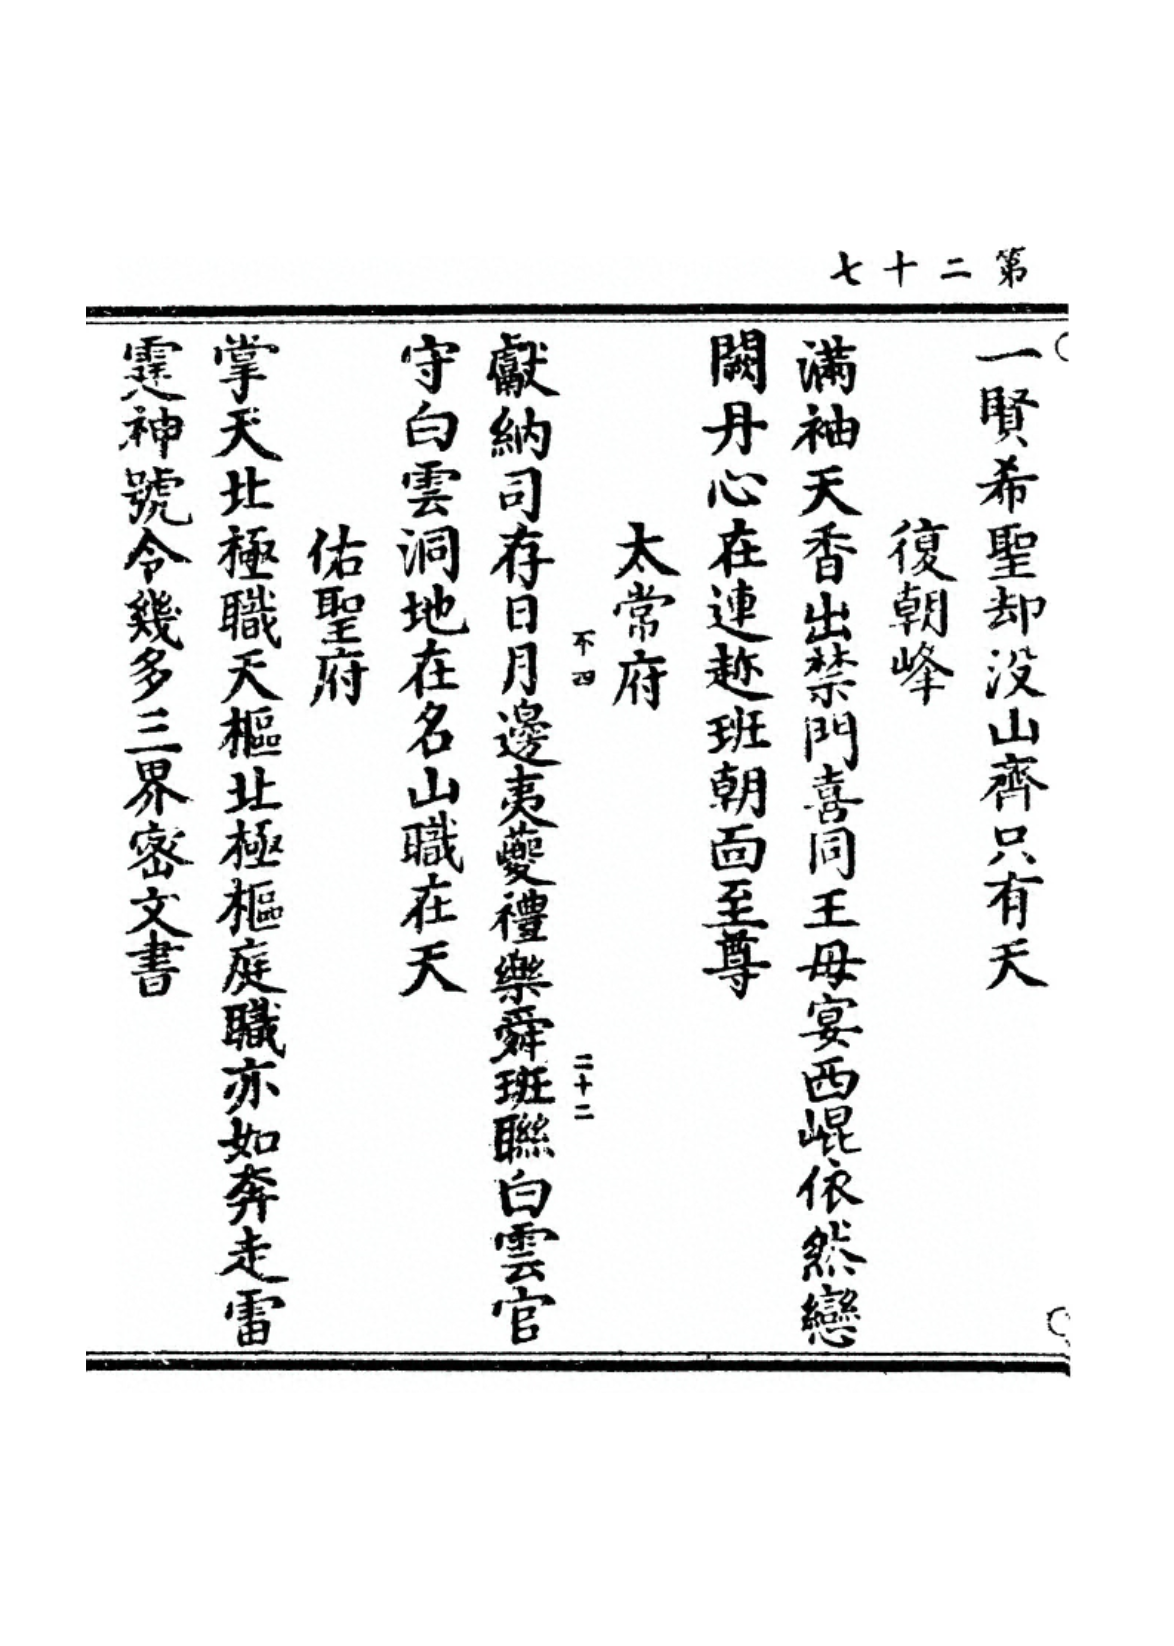 第二十七
一賢希聖却没山齊只有天
復朝峰
滿袖天香出禁門喜同王母宴西崐依然戀
闕丹心在連趂班朝面至尊
太常府
不四
二十二
獻納司存日月邊夷夔禮樂舜班聯白雲官
守白雲洞地在名山職在天
佑聖府
掌天北極職天樞北極樞庭職亦如奔走雷
霆神號令幾多三界密文書